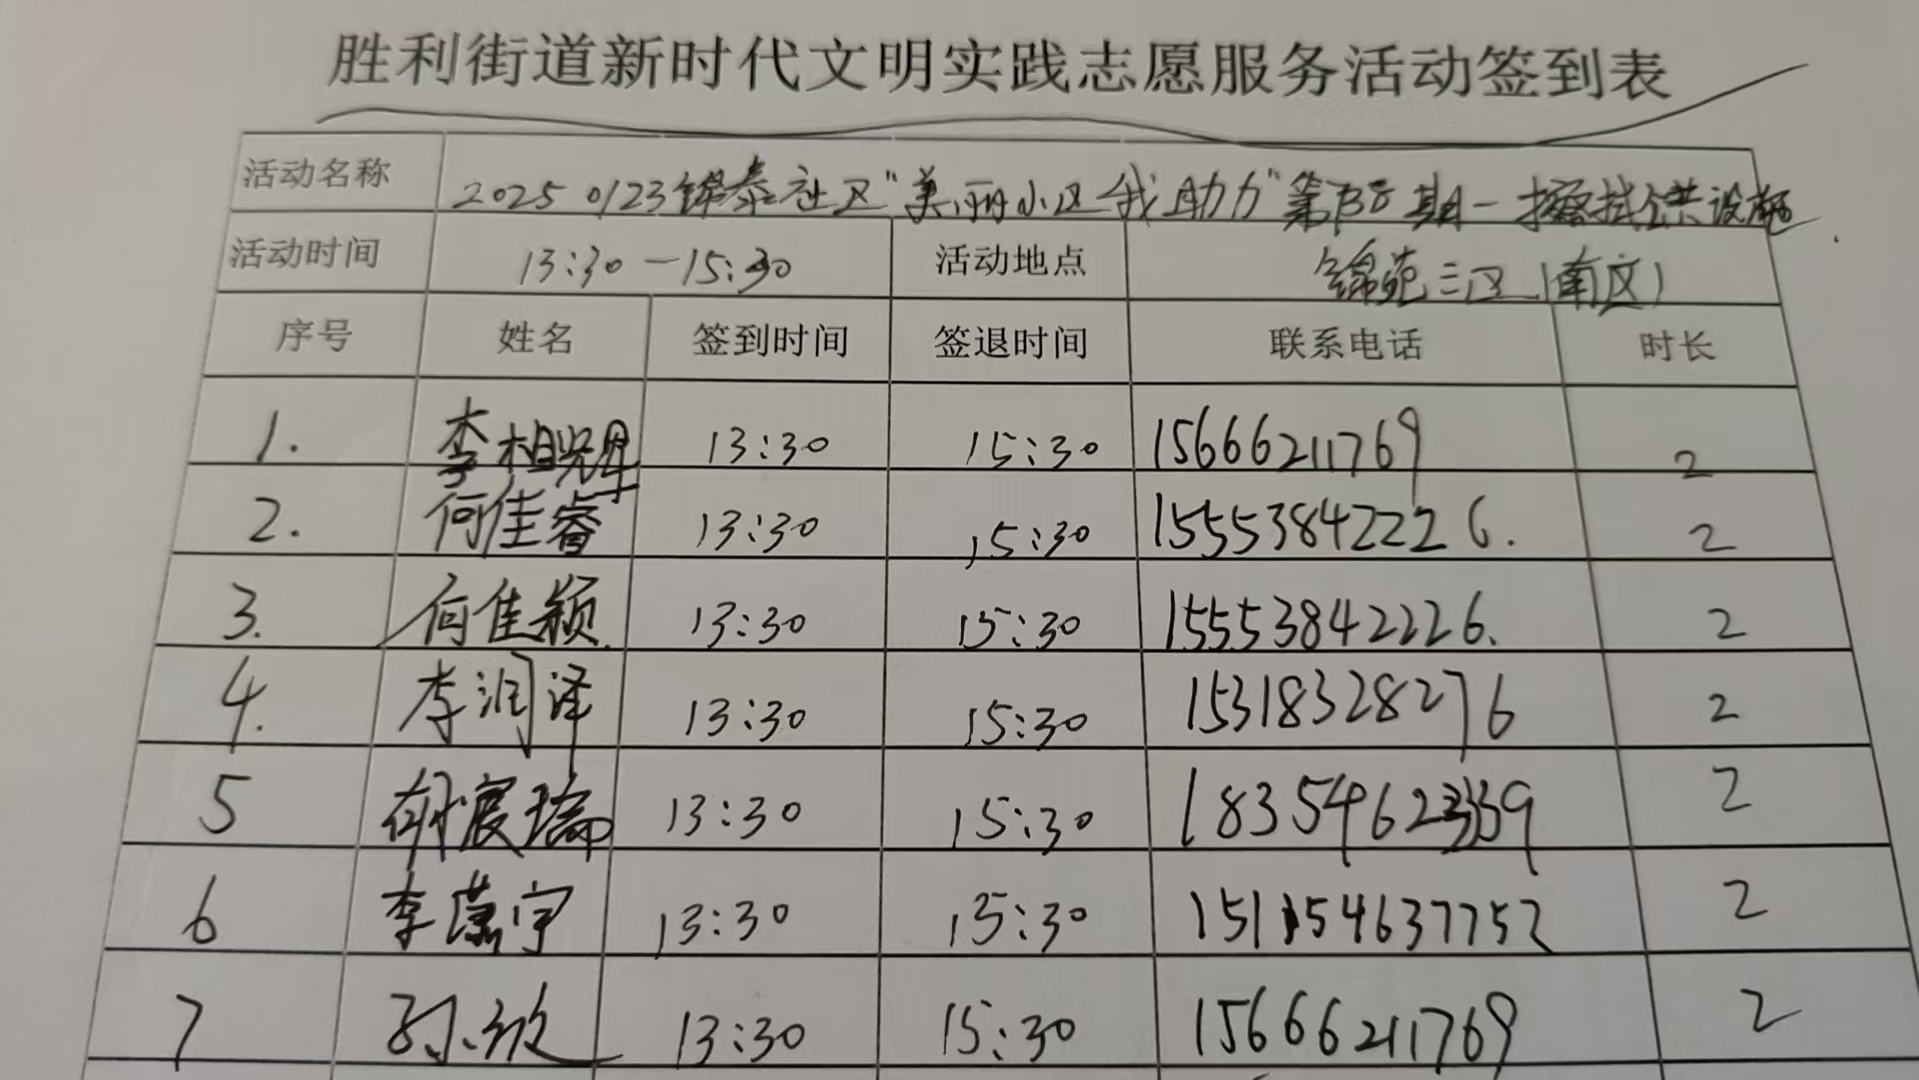 胜利街道新时代文明实践志愿服务活动签到表
活动名称 20250123锦泰社区"美丽小区我助力"第 期-擦拭公共设施
活动时间 13:30-15:30 活动地点 锦苑三区(南区)
序号 姓名 签到时间 签退时间 联系电话 时长
1. 李相焜 13:30 15:30 15666211769 2
2. 何佳睿 13:30 15:30 15553842226. 2
3. 何佳颖 13:30 15:30 15553842226. 2
4. 李润泽 13:30 15:30 15318328276 2
5 胡宸瑞 13:30 15:30 2
6 李潇宇 13:30 15:30 2
7 孙波 13:30 15:30 15666211769 2